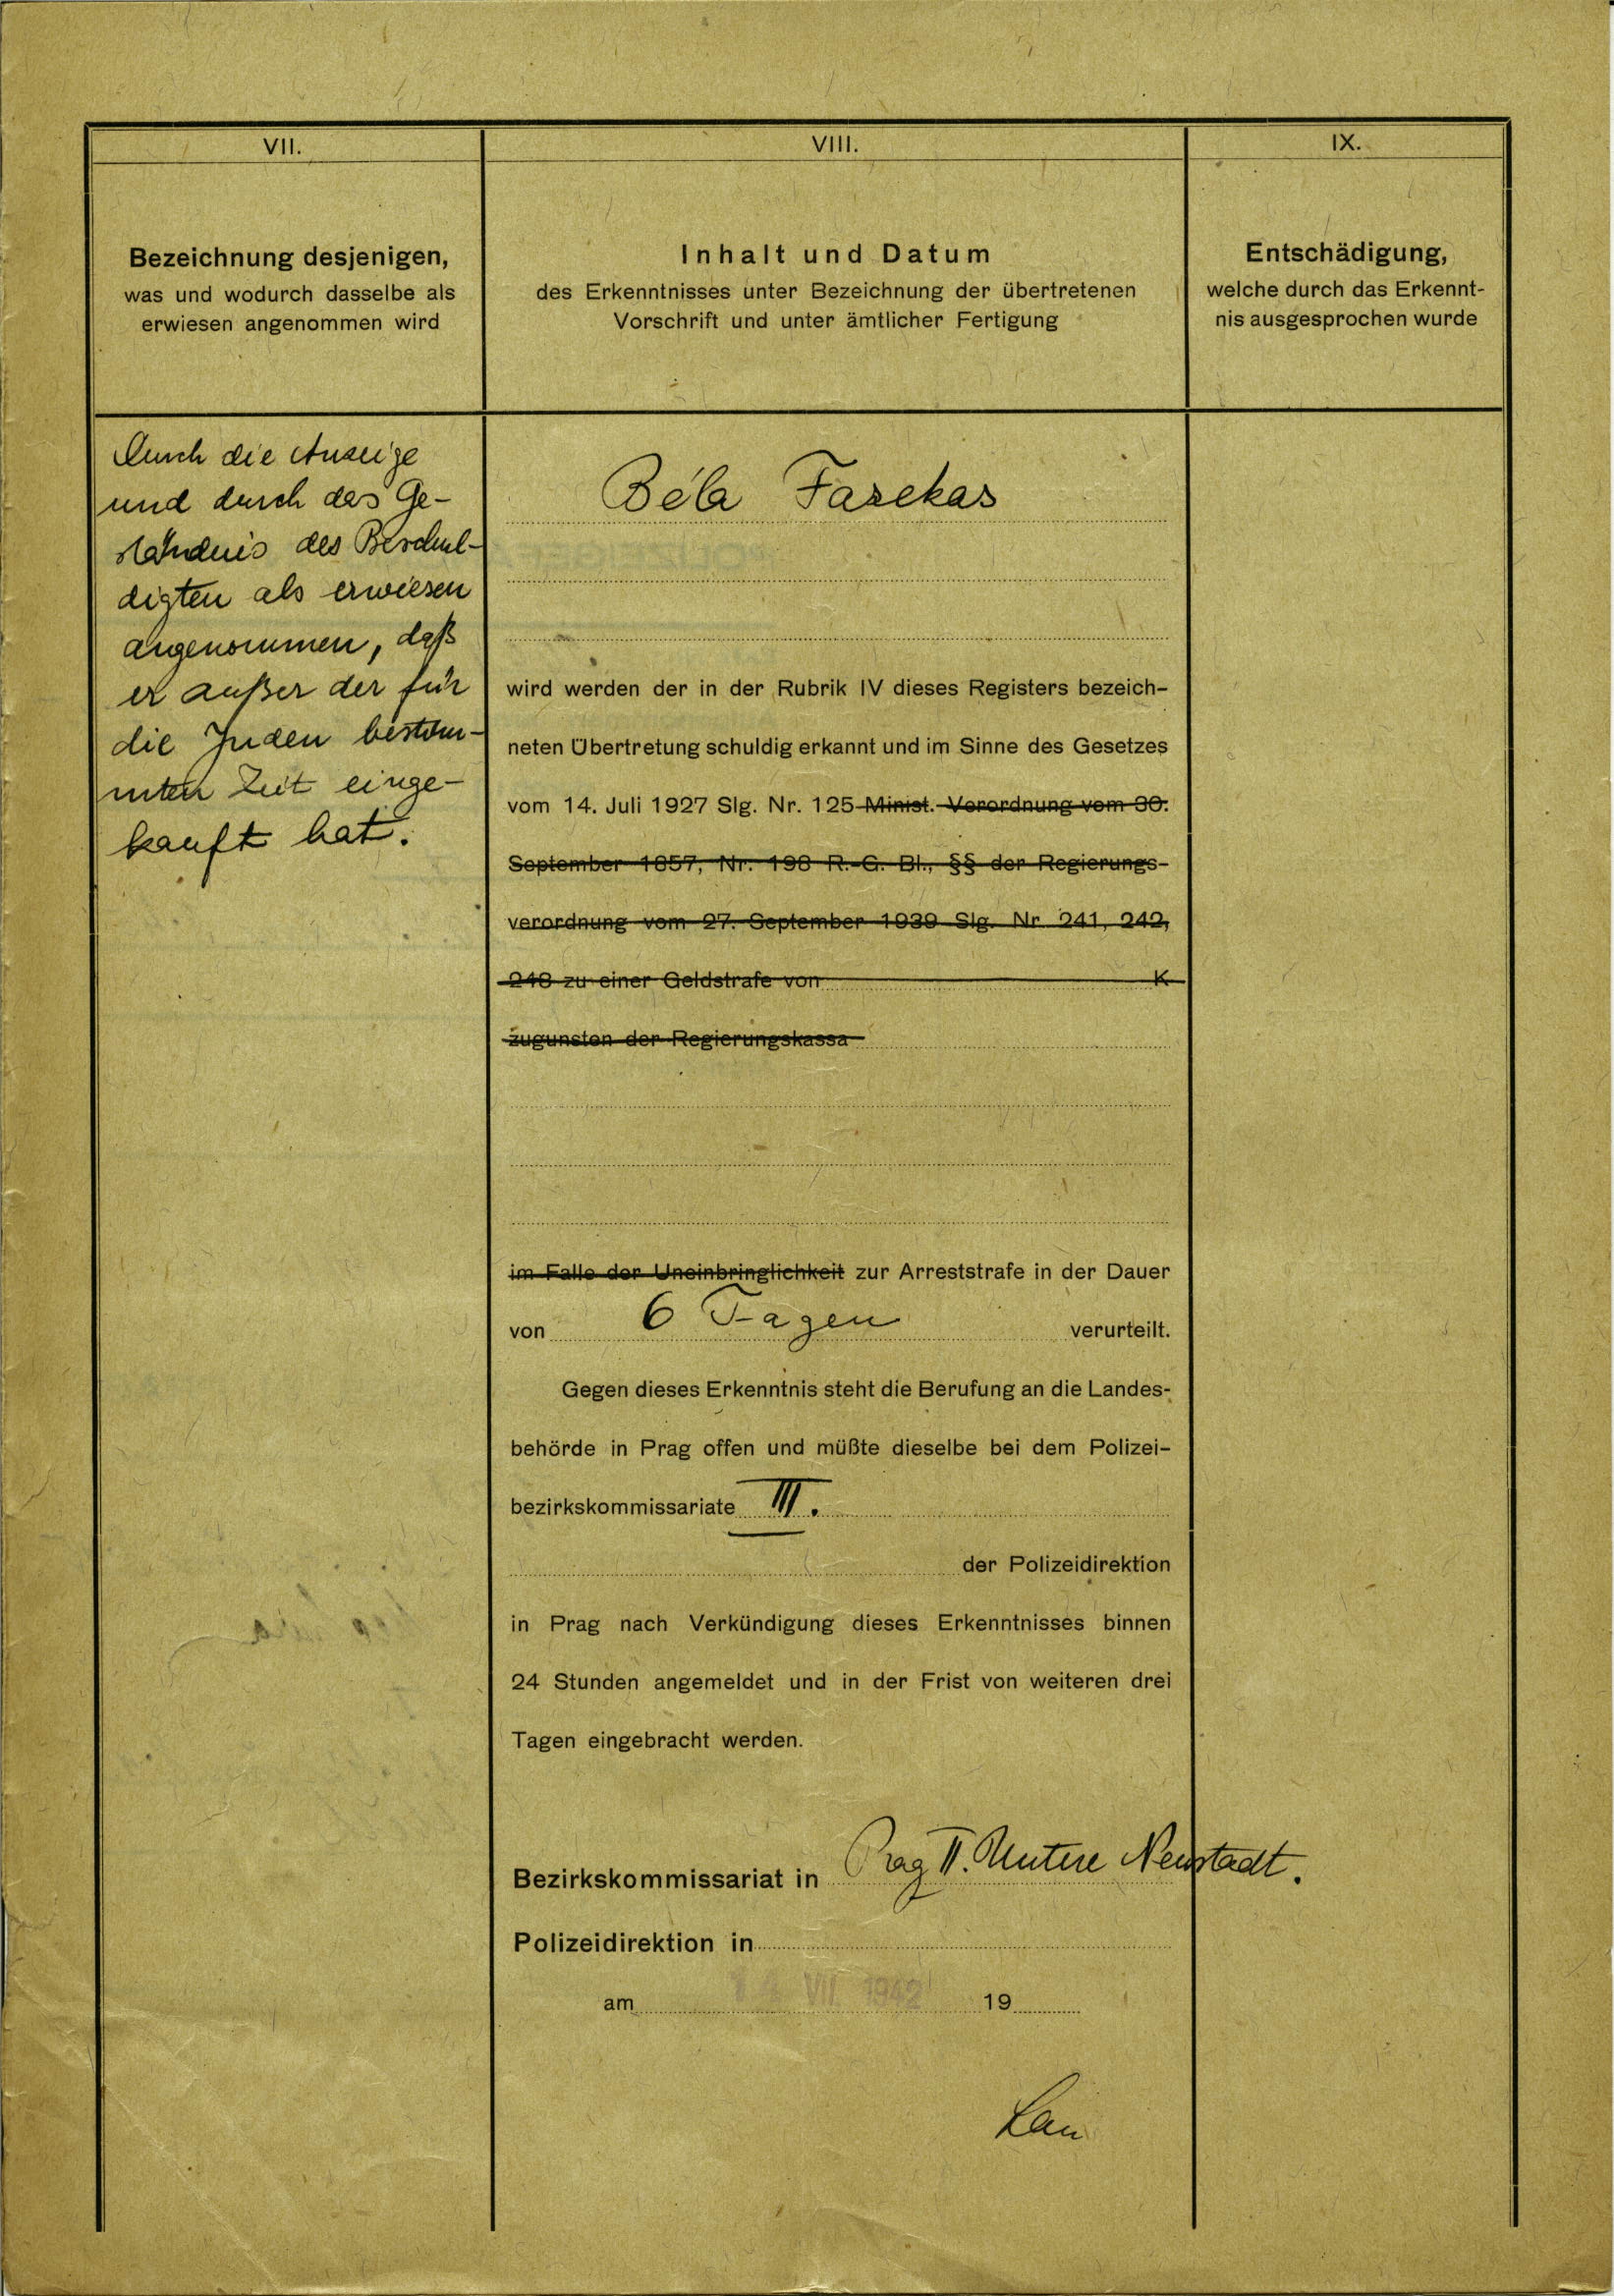 VII.
Bezeichnung desjenigen,
was und wodurch dasselbe als
erwiesen angenommen wird
Durch die Anzeige
und durch das Ge-
ständnis des Beschul-
digten als erwiesen
angenommen, daß
er außer der für
die Juden bestim-
mten Zeit einge-
kauft hat.
VIII.
Inhalt und Datum
des Erkenntnisses unter Bezeichnung der übertretenen
Vorschrift und unter ämtlicher Fertigung
Béla Fazekas
wird werden der in der Rubrik IV dieses Registers bezeich-
neten Übertretung schuldig erkannt und im Sinne des Gesetzes
vom 14. Juli 1927 Slg. Nr. 125 Minist. Verordnung vom 30.
September 1857, Nr. 198 R.-G. Bl., §§ der Regierungs-
verordnung vom 27. September 1939 Slg. Nr 241, 242,
zu einer Geldstrafe von K
zugunsten der Regierungskassa
im Falle der Uneinbringlichkeit zur Arreststrafe in der Dauer
von 6 Tagen verurteilt.
Gegen dieses Erkenntnis steht die Berufung an die Landes-
behörde in Prag offen und müßte dieselbe bei dem Polizei-
bezirkskommissariate III.
der Polizeidirektion
in Prag nach Verkündigung dieses Erkenntnisses binnen
24 Stunden angemeldet und in der Frist von weiteren drei
Tagen eingebracht werden.
Bezirkskommissariat in Prag II. Untere Neustadt.
Polizeidirektion in
am VII. 1942 19
IX.
Entschädigung,
welche durch das Erkennt-
nis ausgesprochen wurde